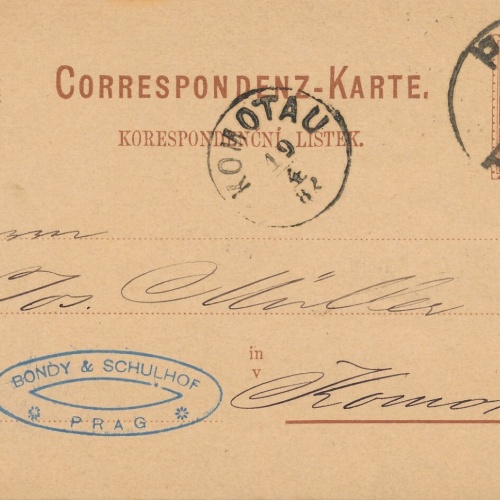 CORRESPONDENZ-KARTE.
KORESPONDENČNÍ LÍSTEK.
KOMOTAU
19
4
82
Jos. Müller
in
v
BONDY & SCHULHOF
PRAG